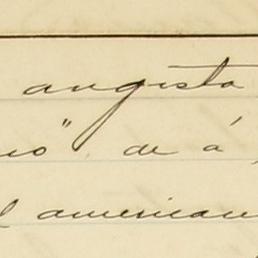 angosta
no" de á
l american